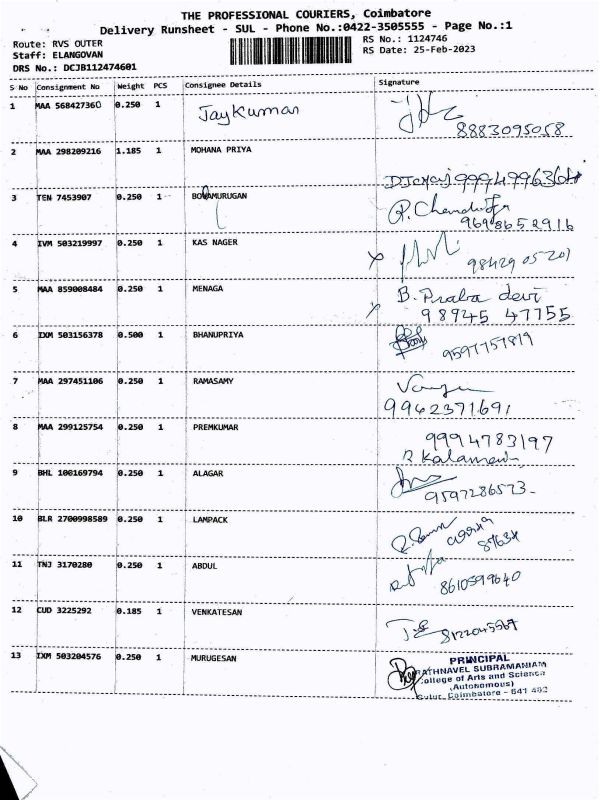 THE PROFESSIONAL COURIERS, Coimbatore
Delivery Runsheet - SUL - Phone No.:0422-3505555 - Page No.:1
Route: RVS OUTER
Staff: ELANGOVAN
DRS No.: DCJB112474601
RS No.: 1124746
RS Date: 25-Feb-2023
S No Consignment No Weight PCS Consignee Details Signature
1 MAA 568427360 0.250 1 Jaykumar
8883095058
2 MAA 298209216 1.185 1 MOHANA PRIYA
3 TEN 7453907 0.250 1 BOMAMURUGAN
9698652916
4 IVM 503219997 0.250 1 KAS NAGER
98429 05201
5 MAA 859008484 0.250 1 MENAGA B. Praba devi
98945 47755
6 IXM 503156378 0.500 1 BHANUPRIYA
9597757819
7 MAA 297451106 0.250 1 RAMASAMY
9942371691
8 MAA 299125754 0.250 1 PREMKUMAR 9994783197
9 BHL 100169794 0.250 1 ALAGAR
9597286573
10 BLR 2700998589 0.250 1 LAMPACK
11 TNJ 3170280 0.250 1 ABDUL
8610599640
12 CUD 3225292 0.185 1 VENKATESAN
8122045967
13 IXM 503204576 0.250 1 MURUGESAN PRINCIPAL
RATHNAVEL SUBRAMANIAM
College of Arts and Science
(Autonomous)
Sulur, Coimbatore - 641 402